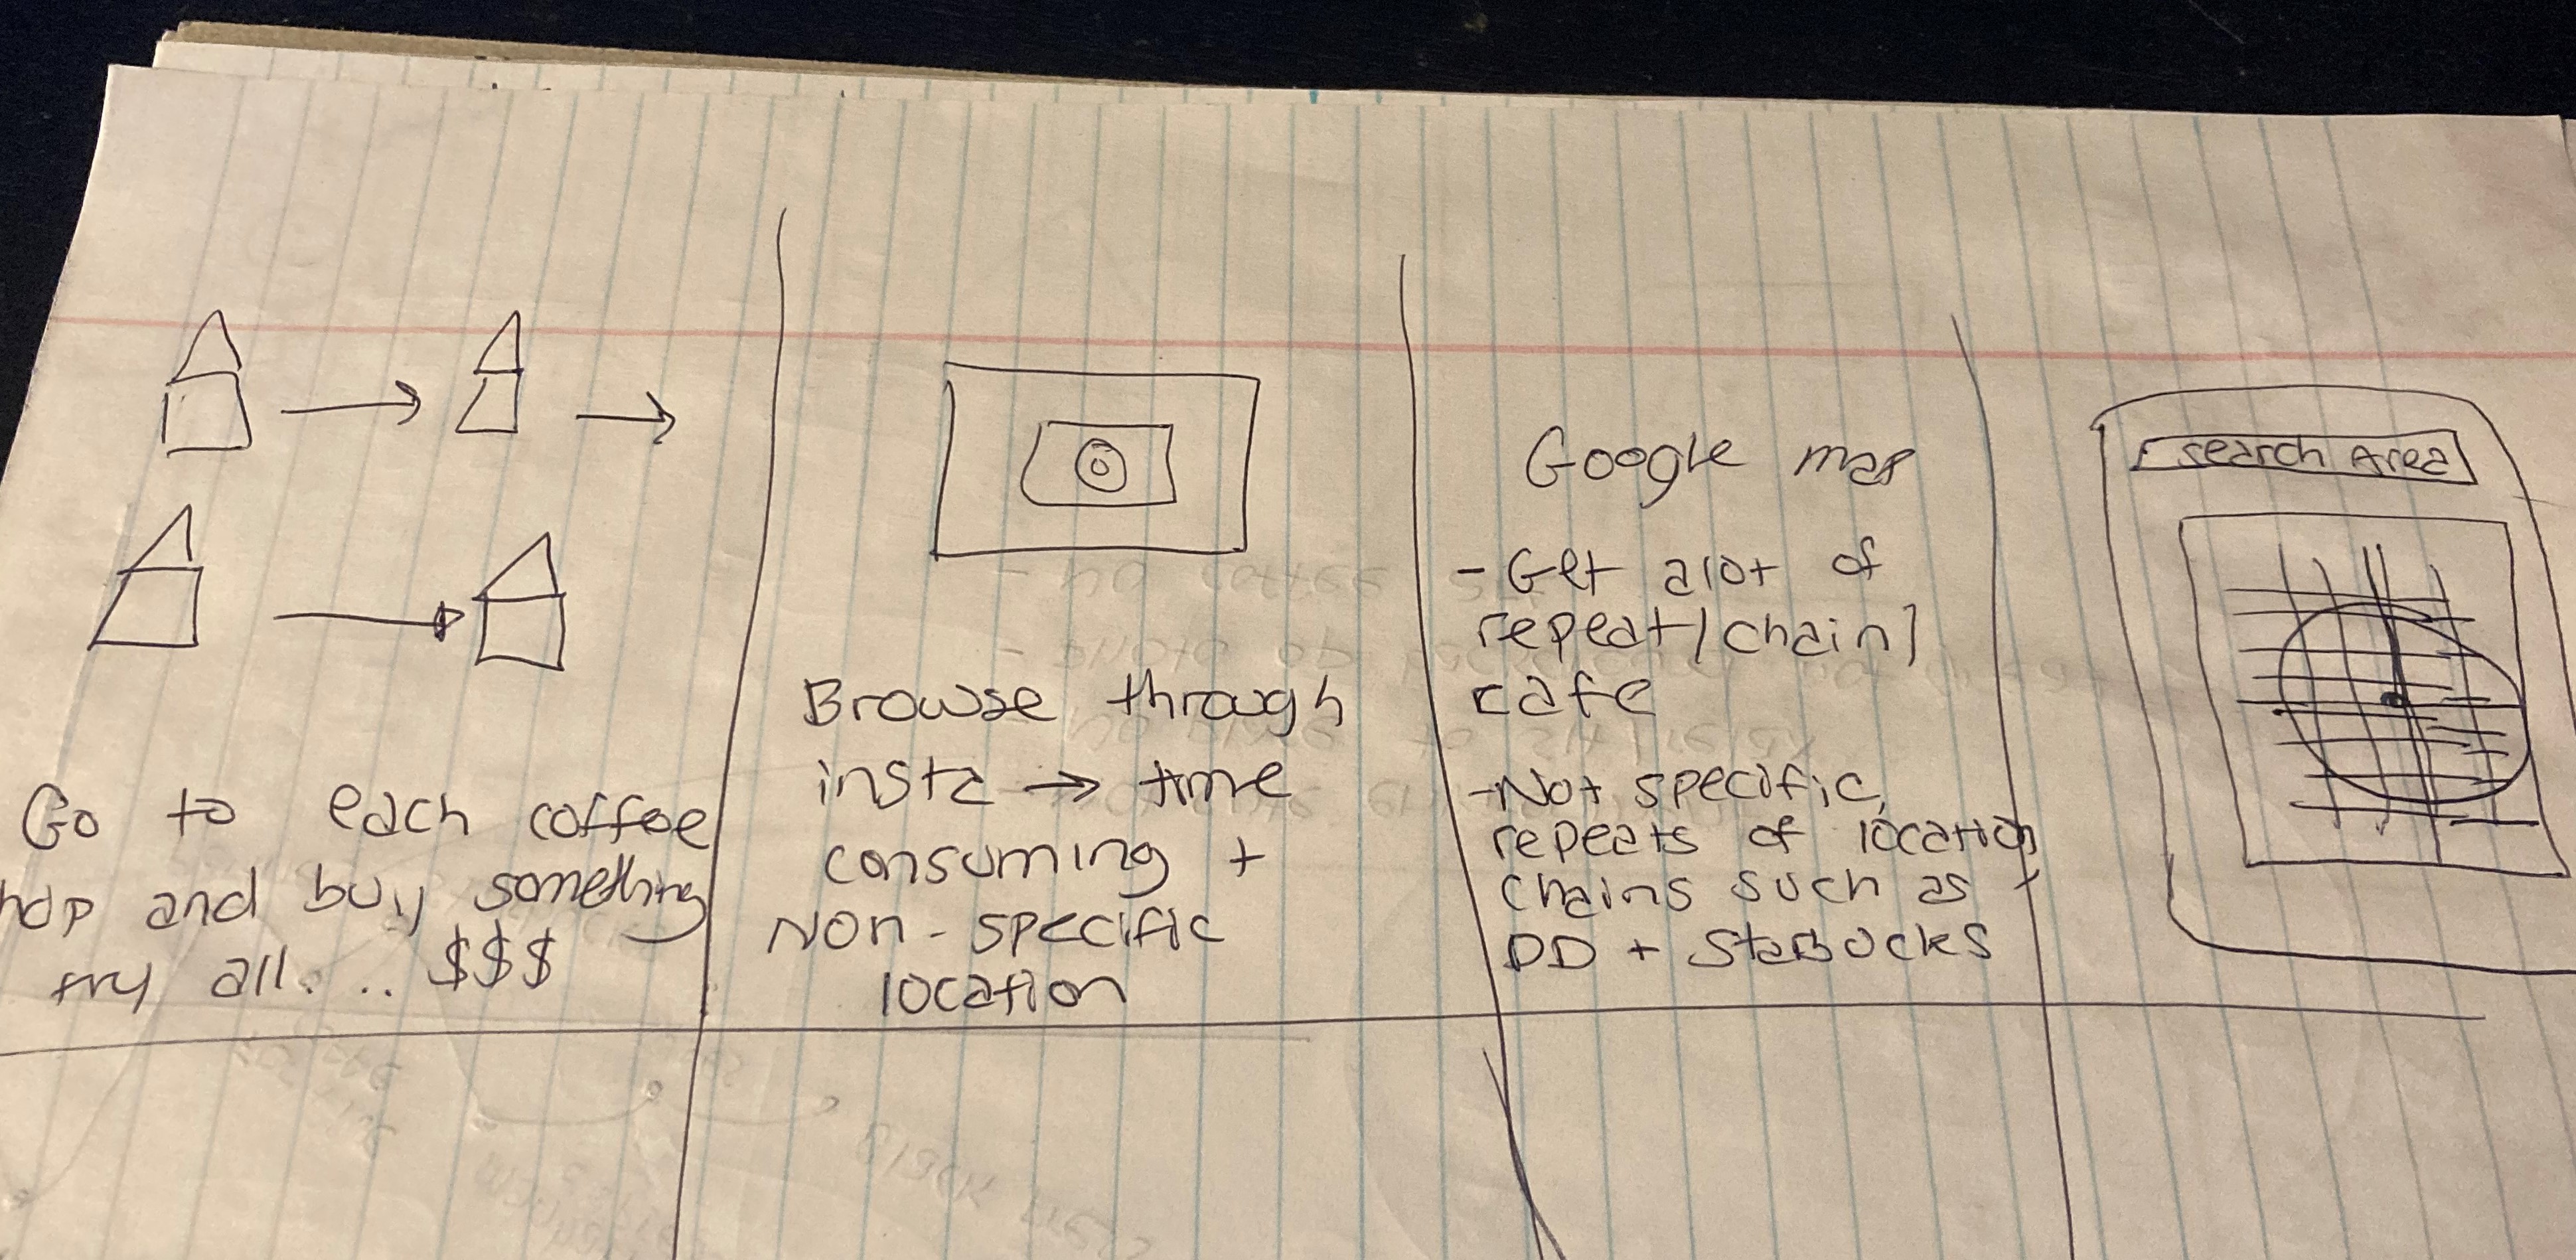 Go to each coffee
and buy something
try all... $$$
Browse through
insta → time
consuming +
Non-specific
location
Google map
- Get alot of
repeat/chain/
cafe
- Not specific,
repeats of location
chains such as
DD + StarBucks
search Area